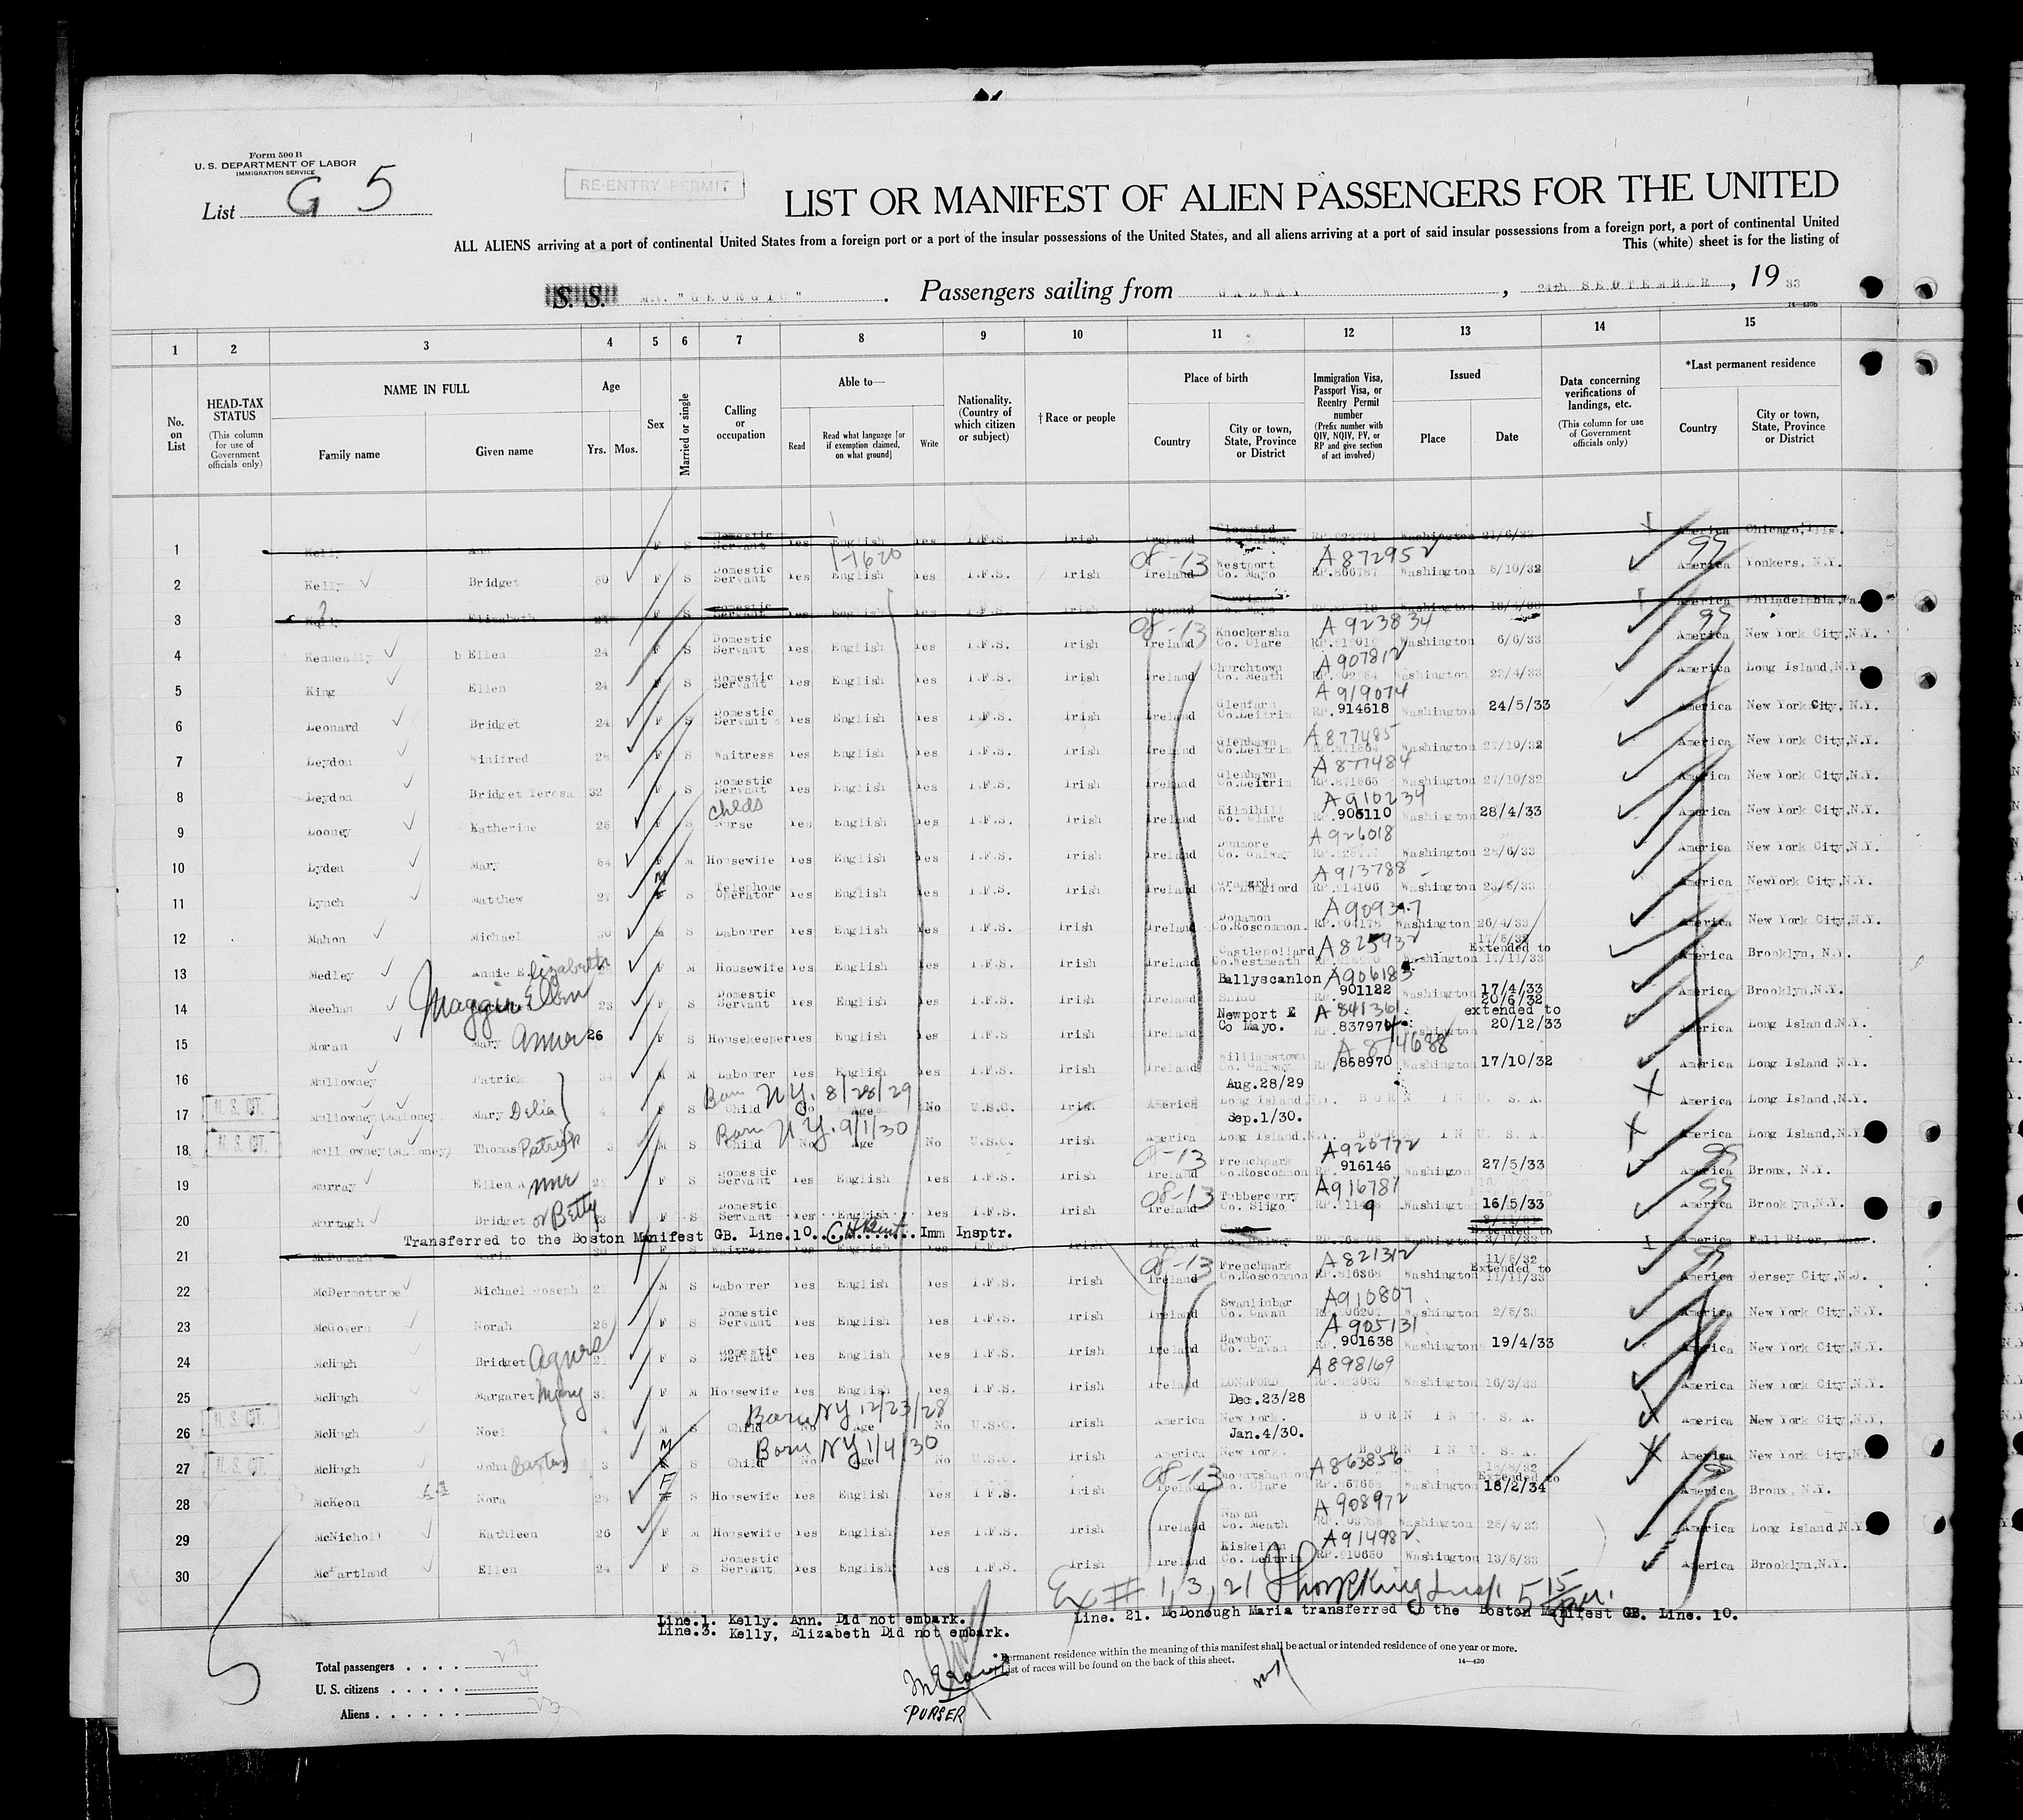 Form 500 B
U. S. DEPARTMENT OF LABOR
IMMIGRATION SERVICE
List G 5
RE-ENTRY PERMIT
LIST OR MANIFEST OF ALIEN PASSENGERS FOR THE UNITED
ALL ALIENS arriving at a port of continental United States from a foreign port or a port of the insular possessions of the United States, and all aliens arriving at a port of said insular possessions from a foreign port, a port of continental United
This (white) sheet is for the listing of
S. S. M.V. "GEORGIC" . Passengers sailing from GALWAY , 24th SEPTEMBER , 19 33
14—430b
1 2 3 4 5 6 7 8 9 10 11 12 13 14 15
No. on List
HEAD-TAX STATUS (This column for use of Government officials only)
NAME IN FULL
Family name Given name
Age
Yrs. Mos.
Sex
Married or single
Calling or occupation
Able to—
Read Read what language [or if exemption claimed, on what ground] Write
Nationality. (Country of which citizen or subject)
†Race or people
Place of birth
Country City or town, State, Province or District
Immigration Visa, Passport Visa, or Reentry Permit number (Prefix number with QIV, NQIV, PV, or RP and give section of act involved)
Issued
Place Date
Data concerning verifications of landings, etc. (This column for use of Government officials only)
*Last permanent residence
Country City or town, State, Province or District
1 Kelly Ann F S Domestic Servant Yes English Yes I.F.S. Irish Ireland Co. Galway Washington America Chicago, Ills.
2 Kelly Bridget 50 F S Domestic Servant Yes English Yes I.F.S. Irish Ireland Westport Co. Mayo A 872952 RP.866787 Washington 5/10/32 America Yonkers, N.Y.
3 Kelly Elizabeth F S Domestic Servant English Yes I.F.S. Irish Ireland Co. Mayo Washington America Philadelphia, Pa.
4 Kenneally b Ellen 24 F S Domestic Servant Yes English Yes I.F.S. Irish 08-13 Ireland Knockersha Co. Clare A 923834 Washington 6/6/33 America New York City, N.Y.
5 King Ellen 24 F S Domestic Servant Yes English Yes I.F.S. Irish Ireland Churchtown Co. Meath A 907812 Washington America Long Island, N.Y.
6 Leonard Bridget 24 F S Domestic Servant Yes English Yes I.F.S. Irish Ireland Glenfarn Co.Leitrim A 919074 RP. 914618 Washington 24/5/33 America New York City, N.Y.
7 Leydon Winifred 28 F S Waitress Yes English Yes I.F.S. Irish Ireland Co.Leitrim A 877485 Washington 27/10/32 America New York City, N.Y.
8 Leydon Bridget Teresa 32 F S Domestic Servant Yes English Yes I.F.S. Irish Ireland Co.Leitrim A 877484 RP.871565 Washington 27/10/32 America New York City, N.Y.
9 Looney Katherine 25 F S Childs Nurse Yes English Yes I.F.S. Irish Ireland Kilmihill Co. Clare A 910234 RP.905110 Washington 28/4/33 America New York City, N.Y.
10 Lyden Mary 54 F M Housewife Yes English Yes I.F.S. Irish Ireland Dunmore Co. Galway A 926018 Washington 26/6/33 America New York City, N.Y.
11 Lynch Matthew 27 M S Telephone Operator Yes English Yes I.F.S. Irish Ireland Granard Co. Longford A 913788 RP.914106 Washington America NewYork City, N.Y.
12 Mahon Michael 30 M S Labourer Yes English Yes I.F.S. Irish Ireland Donamon Co.Roscommon. RP.904178 Washington 26/4/33 America New York City, N.Y.
13 Medley Annie Elizabeth F M Housewife Yes English Yes I.F.S. Irish Ireland Castlepollard Co.Westmeath A 825932 Washington Extended to 17/11/33 America Brooklyn, N.Y.
14 Meehan Maggie Ellen 23 F S Domestic Servant Yes English Yes I.F.S. Irish Ireland Ballyscanlon Sligo A 906183 901122 Washington 17/4/33 America Brooklyn, N.Y.
15 Moran Mary Anne 26 F S Housekeeper Yes English Yes I.F.S Irish Ireland Newport Co Mayo. A 841361 Washington 20/6/32 extended to 20/12/33 America Long Island, N.Y.
16 Mullowney Patrick 34 M M Labourer Yes English Yes I.F.S. Irish Ireland Williamstown Co. Galway A 874688 868970 17/10/32 America Long Island N.Y.
17 U. S. CIT. Mullowney (Maloney) Mary Delia 4 F S Born N.Y. 8/28/29 Child No Age No U.S.C. Irish America Aug.28/29 Long Island, N.Y. BORN IN U. S. A. America Long Island, N.Y.
18 U. S. CIT. Mullowney (Maloney) Thomas Patrick 3 M S Born N.Y. 9/1/30 Child No Age No U.S.C. Irish America Sep.1/30. Long Island, N.Y. BORN IN U. S. A. America Long Island, N.Y.
19 Murray Ellen A F S Domestic Servant Yes English Yes I.F.S. Irish 08-13 Ireland Frenchpark Co.Roscommon A920772 916146 Washington 27/5/33 America Bronx, N.Y.
20 Murtagh Bridget or Betty 23 F S Domestic Servant Yes English Yes I.F.S. Irish 08-13 Ireland Tubbercurry Co. Sligo A916781 Washington 16/5/33 America Brooklyn, N.Y.
Transferred to the Boston Manifest GB. Line.10. Imm Insptr.
21 McDonough Maria Waitress English Yes Irish Ireland Co. Galway Washington Extended to America Fall River, Mass.
22 McDermottroe Michael Joseph M S Labourer Yes English Yes I.F.S. Irish 08-13 Ireland Frenchpark Co.Roscommon A 821312 RP.816368 Washington 11/5/32 Extended to 11/11/33 America Jersey City, N.J.
23 McGovern Norah 25 F S Domestic Servant Yes English Yes I.F.S. Irish Ireland Swanlinbar Co. Cavan A910807 Washington 2/5/33 America New York City, N.Y.
24 McHugh Bridget Agnes 21 F S Domestic Servant Yes English Yes I.F.S. Irish Ireland Bawnboy Co. Cavan A 905131 901638 Washington 19/4/33 America New York City, N.Y.
25 McHugh Margaret Mary F M Housewife Yes English Yes I.F.S. Irish Ireland LONGFORD A 898169 Washington 16/3/33 America New York City, N.Y.
26 U. S. CIT. McHugh Noel 4 M S Born NY 12/23/28 Child No Age No U.S.C. Irish America Dec.23/28 New York. BORN IN U. S. A. America New York City, N.Y.
27 U. S. CIT. McHugh John 3 M S Born NY 1/4/30 Child No Age No U.S.C. Irish America Jan.4/30. New York. BORN IN U. S. A. America New York City, N.Y.
28 McKeon Nora F S Housewife Yes English Yes I.F.S. Irish 08-13 Ireland Co. Clare A 863856 Washington Extended to 18/2/34 America Bronx, N.Y.
29 McNicholl Kathleen 26 F M Housewife Yes English Yes I.F.S. Irish Ireland Navan Co. Meath A 908972 Washington 26/4/33 America Long Island N.Y.
30 McPartland Ellen 24 F S Domestic Servant Yes English Yes I.F.S. Irish Ireland Kiskellin Co. Leitrim A 914982 RP.910650 Washington 13/5/33 America Brooklyn, N.Y.
Ex # 1, 3, 21
Line.1. Kelly. Ann. Did not embark.
Line.3. Kelly, Elizabeth Did not embark.
Line. 21. McDonough Maria transferred to the Boston Manifest GB. Line. 10.
* Permanent residence within the meaning of this manifest shall be actual or intended residence of one year or more.
† List of races will be found on the back of this sheet.
14—430
Total passengers . . . . 27
U. S. citizens . . . . . 4
Aliens . . . . . . 23
PURSER